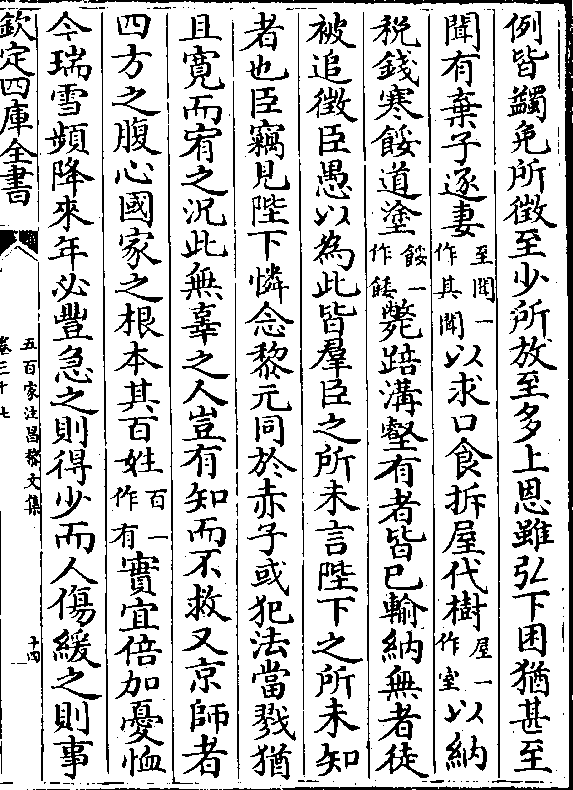 例皆蠲免所徵至少所放至多上恩雖弘下困猶甚至
聞有棄子逐妻至聞一作其聞以求口食拆屋伐樹屋一作室以納
税錢寒餒道塗餒一作餧斃踣溝壑有者皆已輸納無者徒
被追徵臣愚以為此皆羣臣之所未言陛下之所未知
者也臣竊見陛下憐念黎元同於赤子或犯法當戮猶
且寛而宥之況此無辜之人豈有知而不救又京師者
四方之腹心國家之根本其百姓百一作有實宜倍加憂恤
今瑞雪頻降來年必豐急之則得少而人傷緩之則事
欽定四庫全書
五百家注昌黎文集
卷三十七
十四